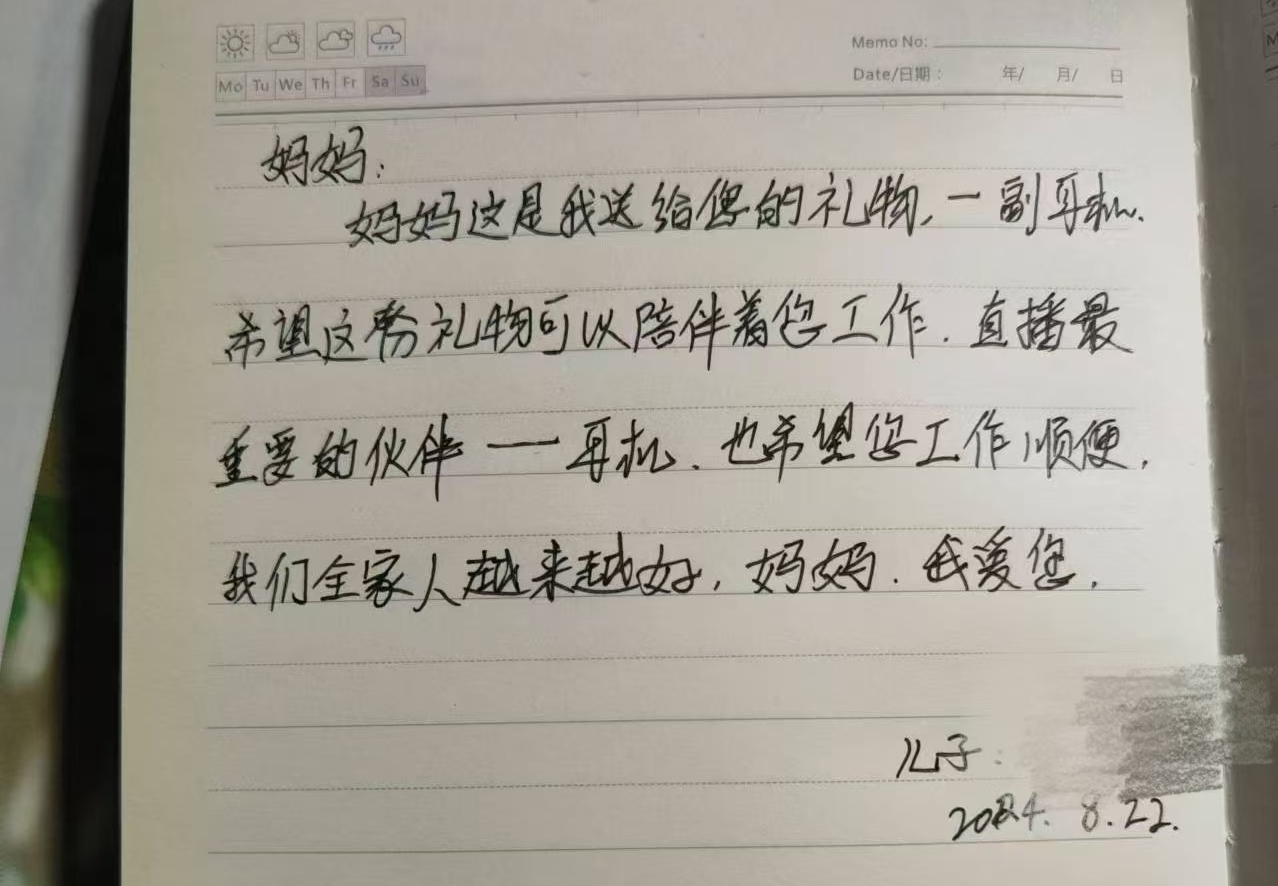 Mo Tu We Th Fr Sa Su
Memo No:
Date/日期： 年/ 月/ 日
妈妈：
妈妈这是我送给您的礼物，一副耳机.
希望这份礼物可以陪伴着您工作.直播最
重要的伙伴——耳机.也希望您工作顺便，
我们全家人越来越好，妈妈.我爱您，
儿子：
2024. 8.22.